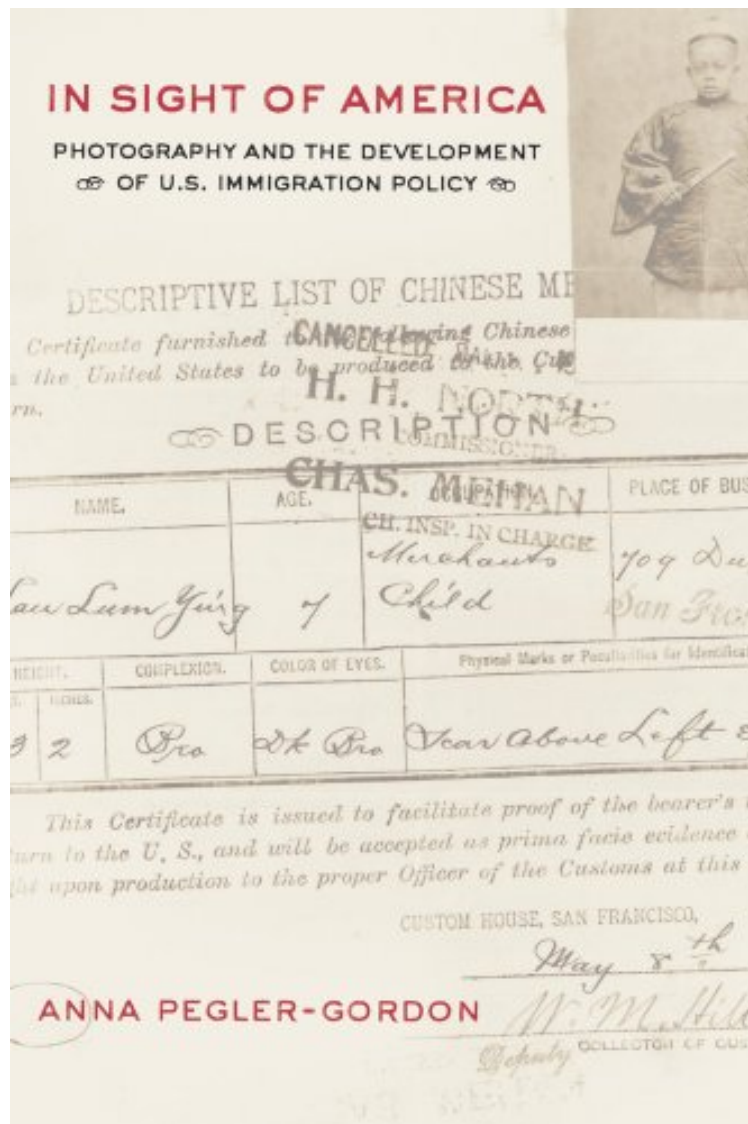 IN SIGHT OF AMERICA
PHOTOGRAPHY AND THE DEVELOPMENT
OF U.S. IMMIGRATION POLICY
DESCRIPTIVE LIST OF CHINESE ME
Certificate furnished Chinese
the United States to be produced to the
rn.
CANCELLED
H. H. NORTH
COMMISSIONER
DESCRIPTION
CHAS. MEHAN
CH. INSP. IN CHARGE
NAME. AGE. OCCUPATION PLACE OF BUS
Lum Ying 7 Merchants Child 709 Du
San Fra
HEIGHT. COMPLEXION. COLOR OF EYES. Physical Marks or Peculiarities for Identifica
INCHES.
3 2 Bro Dk Bro Scar Above Left E
This Certificate is issued to facilitate proof of the bearer's
urn to the U. S., and will be accepted as prima facie evidence
ht upon production to the proper Officer of the Customs at this
CUSTOM HOUSE, SAN FRANCISCO,
May 8th
ANNA PEGLER-GORDON
W. M. Hill
Deputy COLLECTOR OF CUS